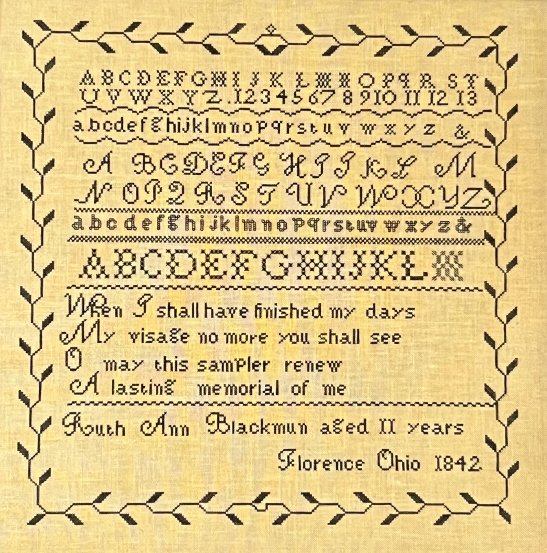 ABCDEFGHIJKLMNOPQRST
UVWXYZ.12345678910 11 12 13
abcdefghijklmnopqrstuvwxyz &
ABCDEFGHIJKLM
NOPQRSTUVWXYZ
abcdefghijklmnopqrstuvwxyz&
ABCDEFGHIJKLM
When I shall have finished my days
My visage no more you shall see
O may this sampler renew
A lasting memorial of me
Ruth Ann Blackmun aged 11 years
Florence Ohio 1842